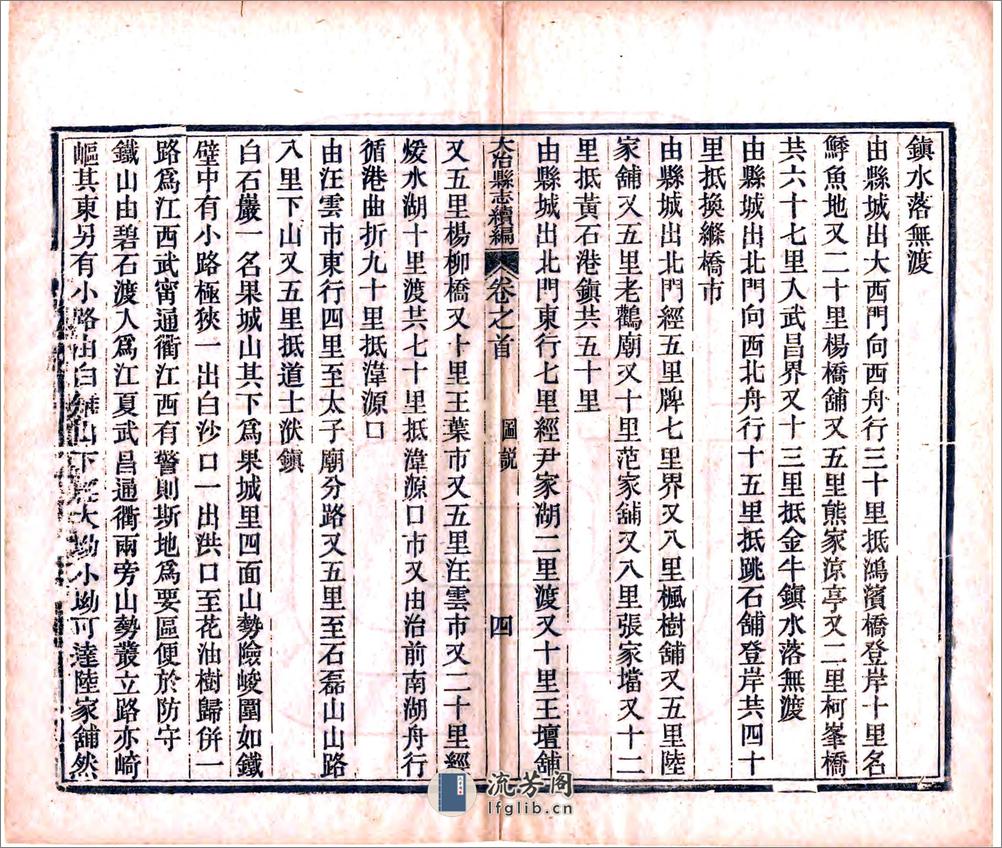 鎮水落無渡
由縣城出大西門向西舟行三十里抵鴻濱橋登岸十里名
鯚魚地又二十里楊橋舖又五里熊家涼亭又二里柯峯橋
共六十七里入武昌界又十三里抵金牛鎮水落無渡
由縣城出北門向西北舟行十五里抵跳石舖登岸共四十
里抵換縧橋市
由縣城出北門經五里牌七里界又八里楓樹舖又五里陸
家舖又五里老鸛廟又十里范家舖又八里張家壋又十二
里抵黃石港鎮共五十里
由縣城出北門東行七里經尹家湖二里渡又十里王壇舖
大冶縣志續編 卷之首 圖説 四
又五里楊柳橋又十里王葉市又五里汪雲市又二十里經
煖水湖十里渡共七十里抵湋源口市又由治前南湖舟行
循港曲折九十里抵湋源口
由汪雲市東行四里至太子廟分路又五里至石磊山山路
八里下山又五里抵道士洑鎮
白石巖一名果城山其下爲果城里四面山勢險峻圍如鐵
壁中有小路極狹一出白沙口一出洪口至花油樹歸併一
路爲江西武甯通衢江西有警則斯地爲要區便於防守
鐵山由碧石渡入爲江夏武昌通衢兩旁山勢叢立路亦崎
嶇其東另有小路由白 山下 大坳小坳可達陸家舖然
流芳阁
lfglib.cn